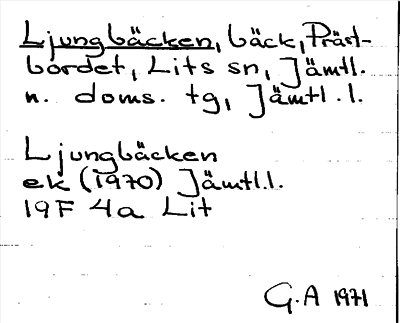 Ljungbäcken, bäck, Präst-
bordet, Lits sn, Jämtl.
n. doms. tg, Jämtl.l.
Ljungbäcken
ek (1970) Jämtl.l.
19F 4a Lit
G.A 1971